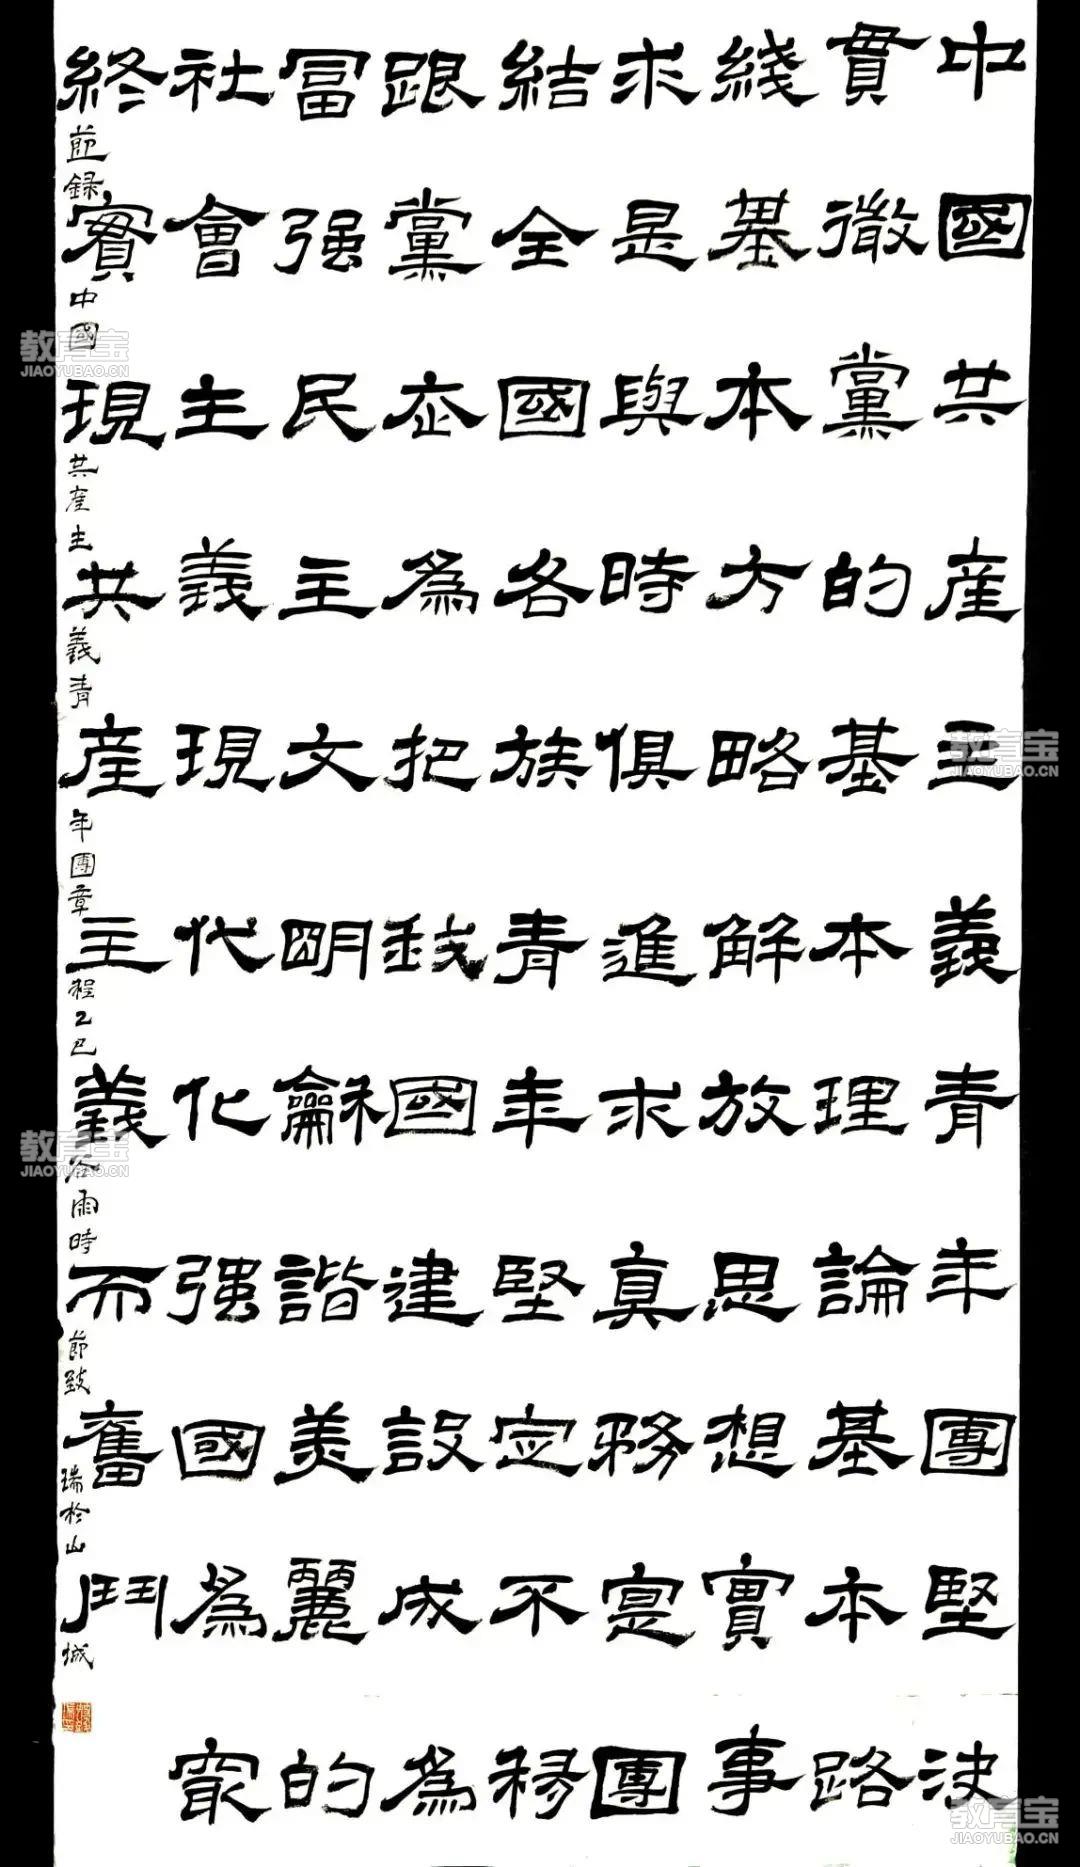 中國共産主義青年團堅決
貫徹黨的基本理論基本路
綫基本方略解放思想實事
求是與時俱進求真務寔團
結全國各族青年堅定不移
跟黨走為把我國建設成為
冨强民主文明龢諧美麗的
社會主義現代化强國為冣
終實現共産主義而奮鬥
節録中國共産主義青年團章程乙巳谷雨時節致瑞於山城
教育宝
JIAOYUBAO.CN
教育宝
JIAOYUBAO.CN
教育宝
JIAOYUBAO.CN
教育宝
JIAOYUBAO.CN